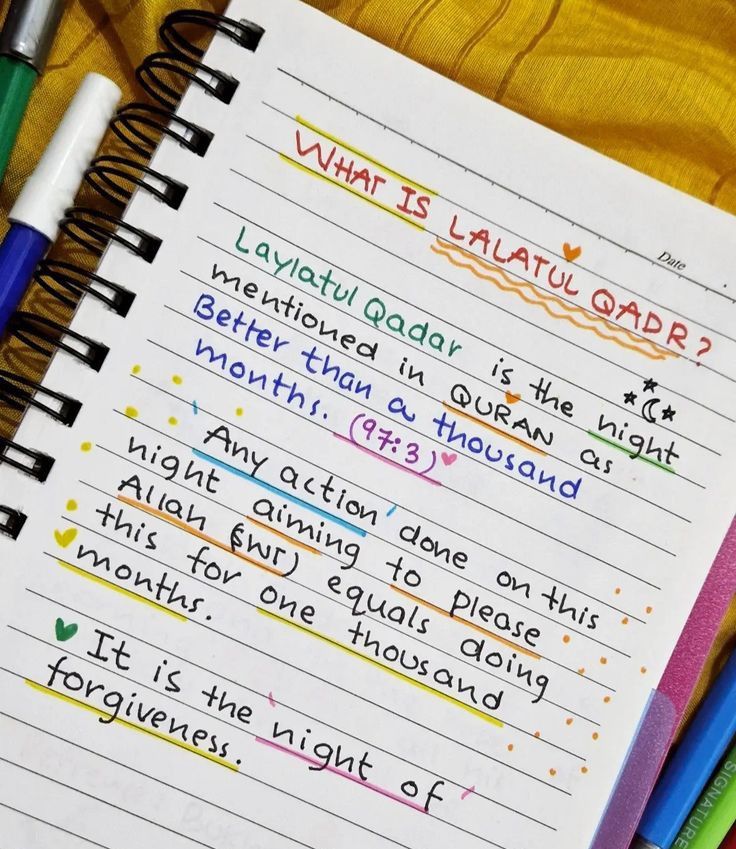 Date
WHAT IS LALATUL QADR?
Laylatul Qadar is the night
mentioned in QURAN as
Better than a thousand
months. (97:3)
'Any action' done on this
night aiming to please
Allah (swt) equals doing
this for one thousand
months.
It is the 'night of'
forgiveness.
SIGNATURE